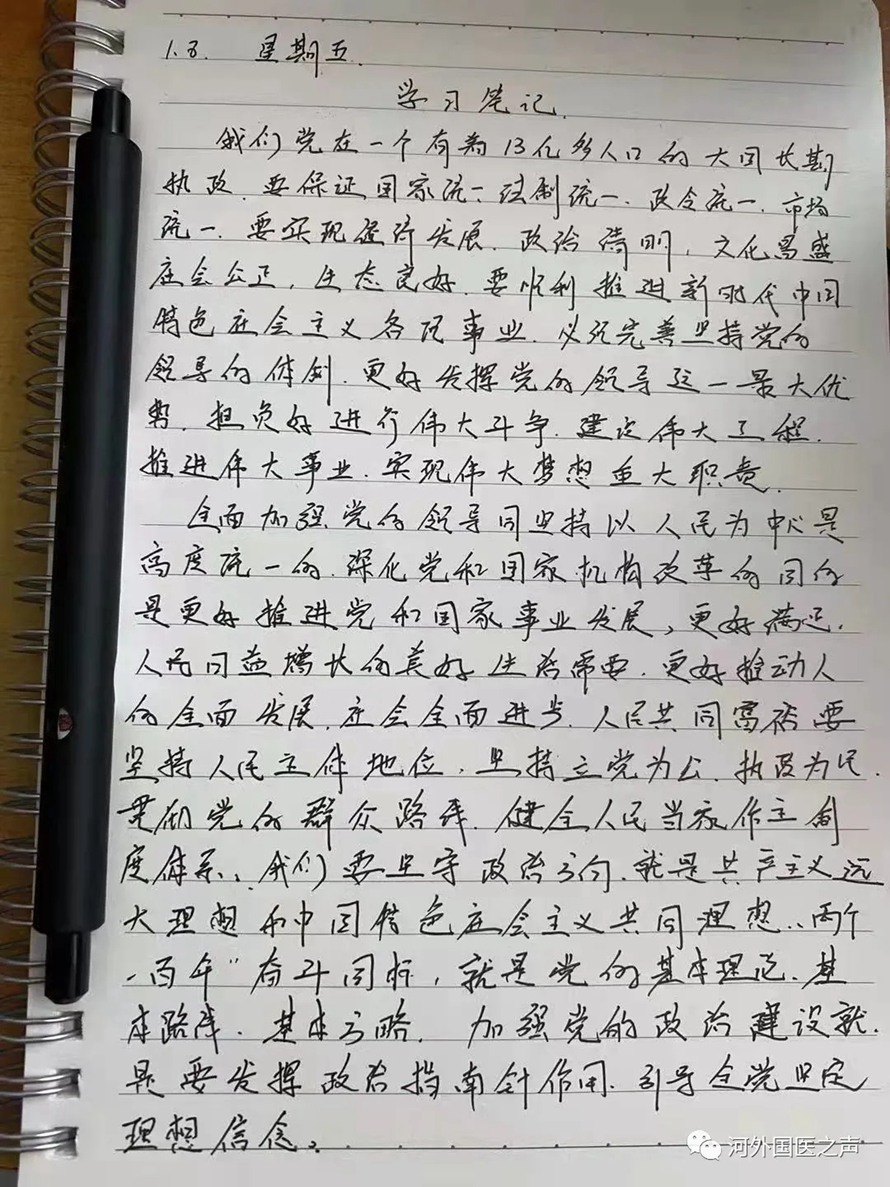 1.8. 星期五.
学习笔记.
我们党在一个有着13亿多人口的大国长期
执政.要保证国家统一.法制统一.政令统一.市场
统一.要实现经济发展.政治清明,文化昌盛
社会公正,生态良好.要顺利推进新时代中国
特色社会主义各项事业.必须完善坚持党的
领导的体制.更好发挥党的领导这一最大优
势.担负好进行伟大斗争.建设伟大工程.
推进伟大事业.实现伟大梦想重大职责.
全面加强党的领导同坚持以人民为中心是
高度统一的.深化党和国家机构改革的目的
是更好推进党和国家事业发展,更好满足.
人民日益增长的美好生活需要.更好推动人
的全面发展.社会全面进步.人民共同富裕要
坚持人民主体地位.坚持立党为公.执政为民.
贯彻党的群众路线.健全人民当家作主制
度体系.我们要坚守政治方向.就是共产主义远
大理想和中国特色社会主义共同理想."两个
一百年"奋斗目标,就是党的基本理论.基
本路线.基本方略. 加强党的政治建设就.
是要发挥政治指南针作用.引导全党坚定
理想信念。
河外国医之声